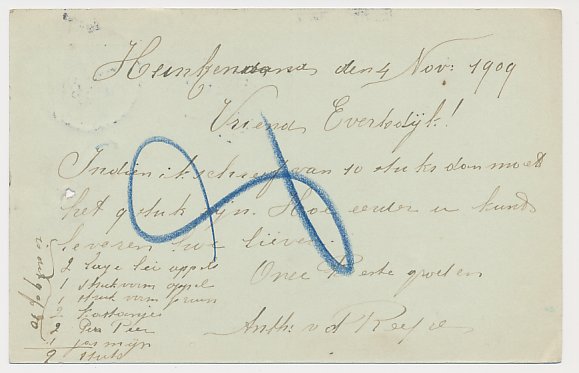 Heinkenszand den 4 Nov. 1909
Vriend Everbdijk!
Indien ik schreef van 10 stuks dan moet
het 9 stuk zijn. Hoe eerder u kunt
leveren hoe liever.
Onze Beste groeten
Anth. v d
2 lage lei appel
1 stuk vrm appel
1 stuk vrm pruim
2 Kastanjes
2 Peer
1 jasmijn
9 stuks